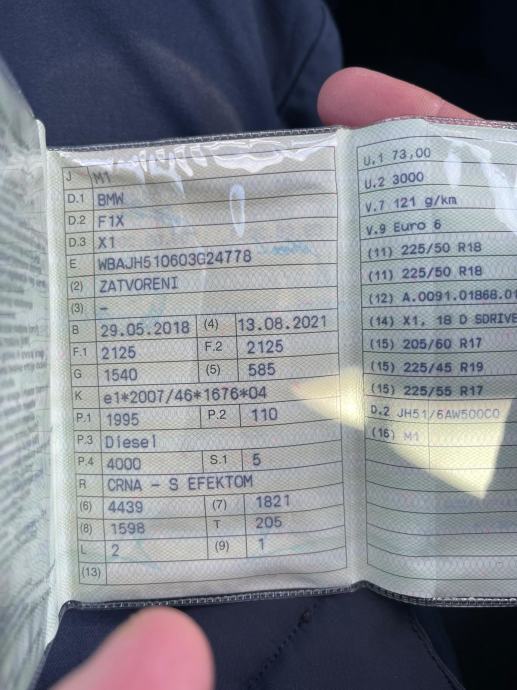 J M1
D.1 BMW
D.2 F1X
D.3 X1
E WBAJH510603G24778
(2) ZATVORENI
(3) –
B 29.05.2018 (4) 13.08.2021
F.1 2125 F.2 2125
G 1540 (5) 585
K e1*2007/46*1676*04
P.1 1995 P.2 110
P.3 Diesel
P.4 4000 S.1 5
R CRNA - S EFEKTOM
(6) 4439 (7) 1821
(8) 1598 T 205
L 2 (9) 1
(13)
U.1 73,00
U.2 3000
V.7 121 g/km
V.9 Euro 6
(11) 225/50 R18
(11) 225/50 R18
(12) A.0091.01868.01
(14) X1, 18 D SDRIVE
(15) 205/60 R17
(15) 225/45 R19
(15) 225/55 R17
D.2 JH51/6AW500C0
(16) M1